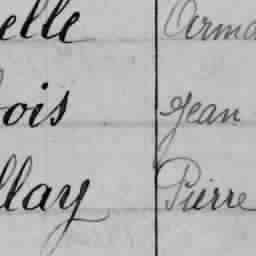 elle Arma
ois Jean
llay Pierre